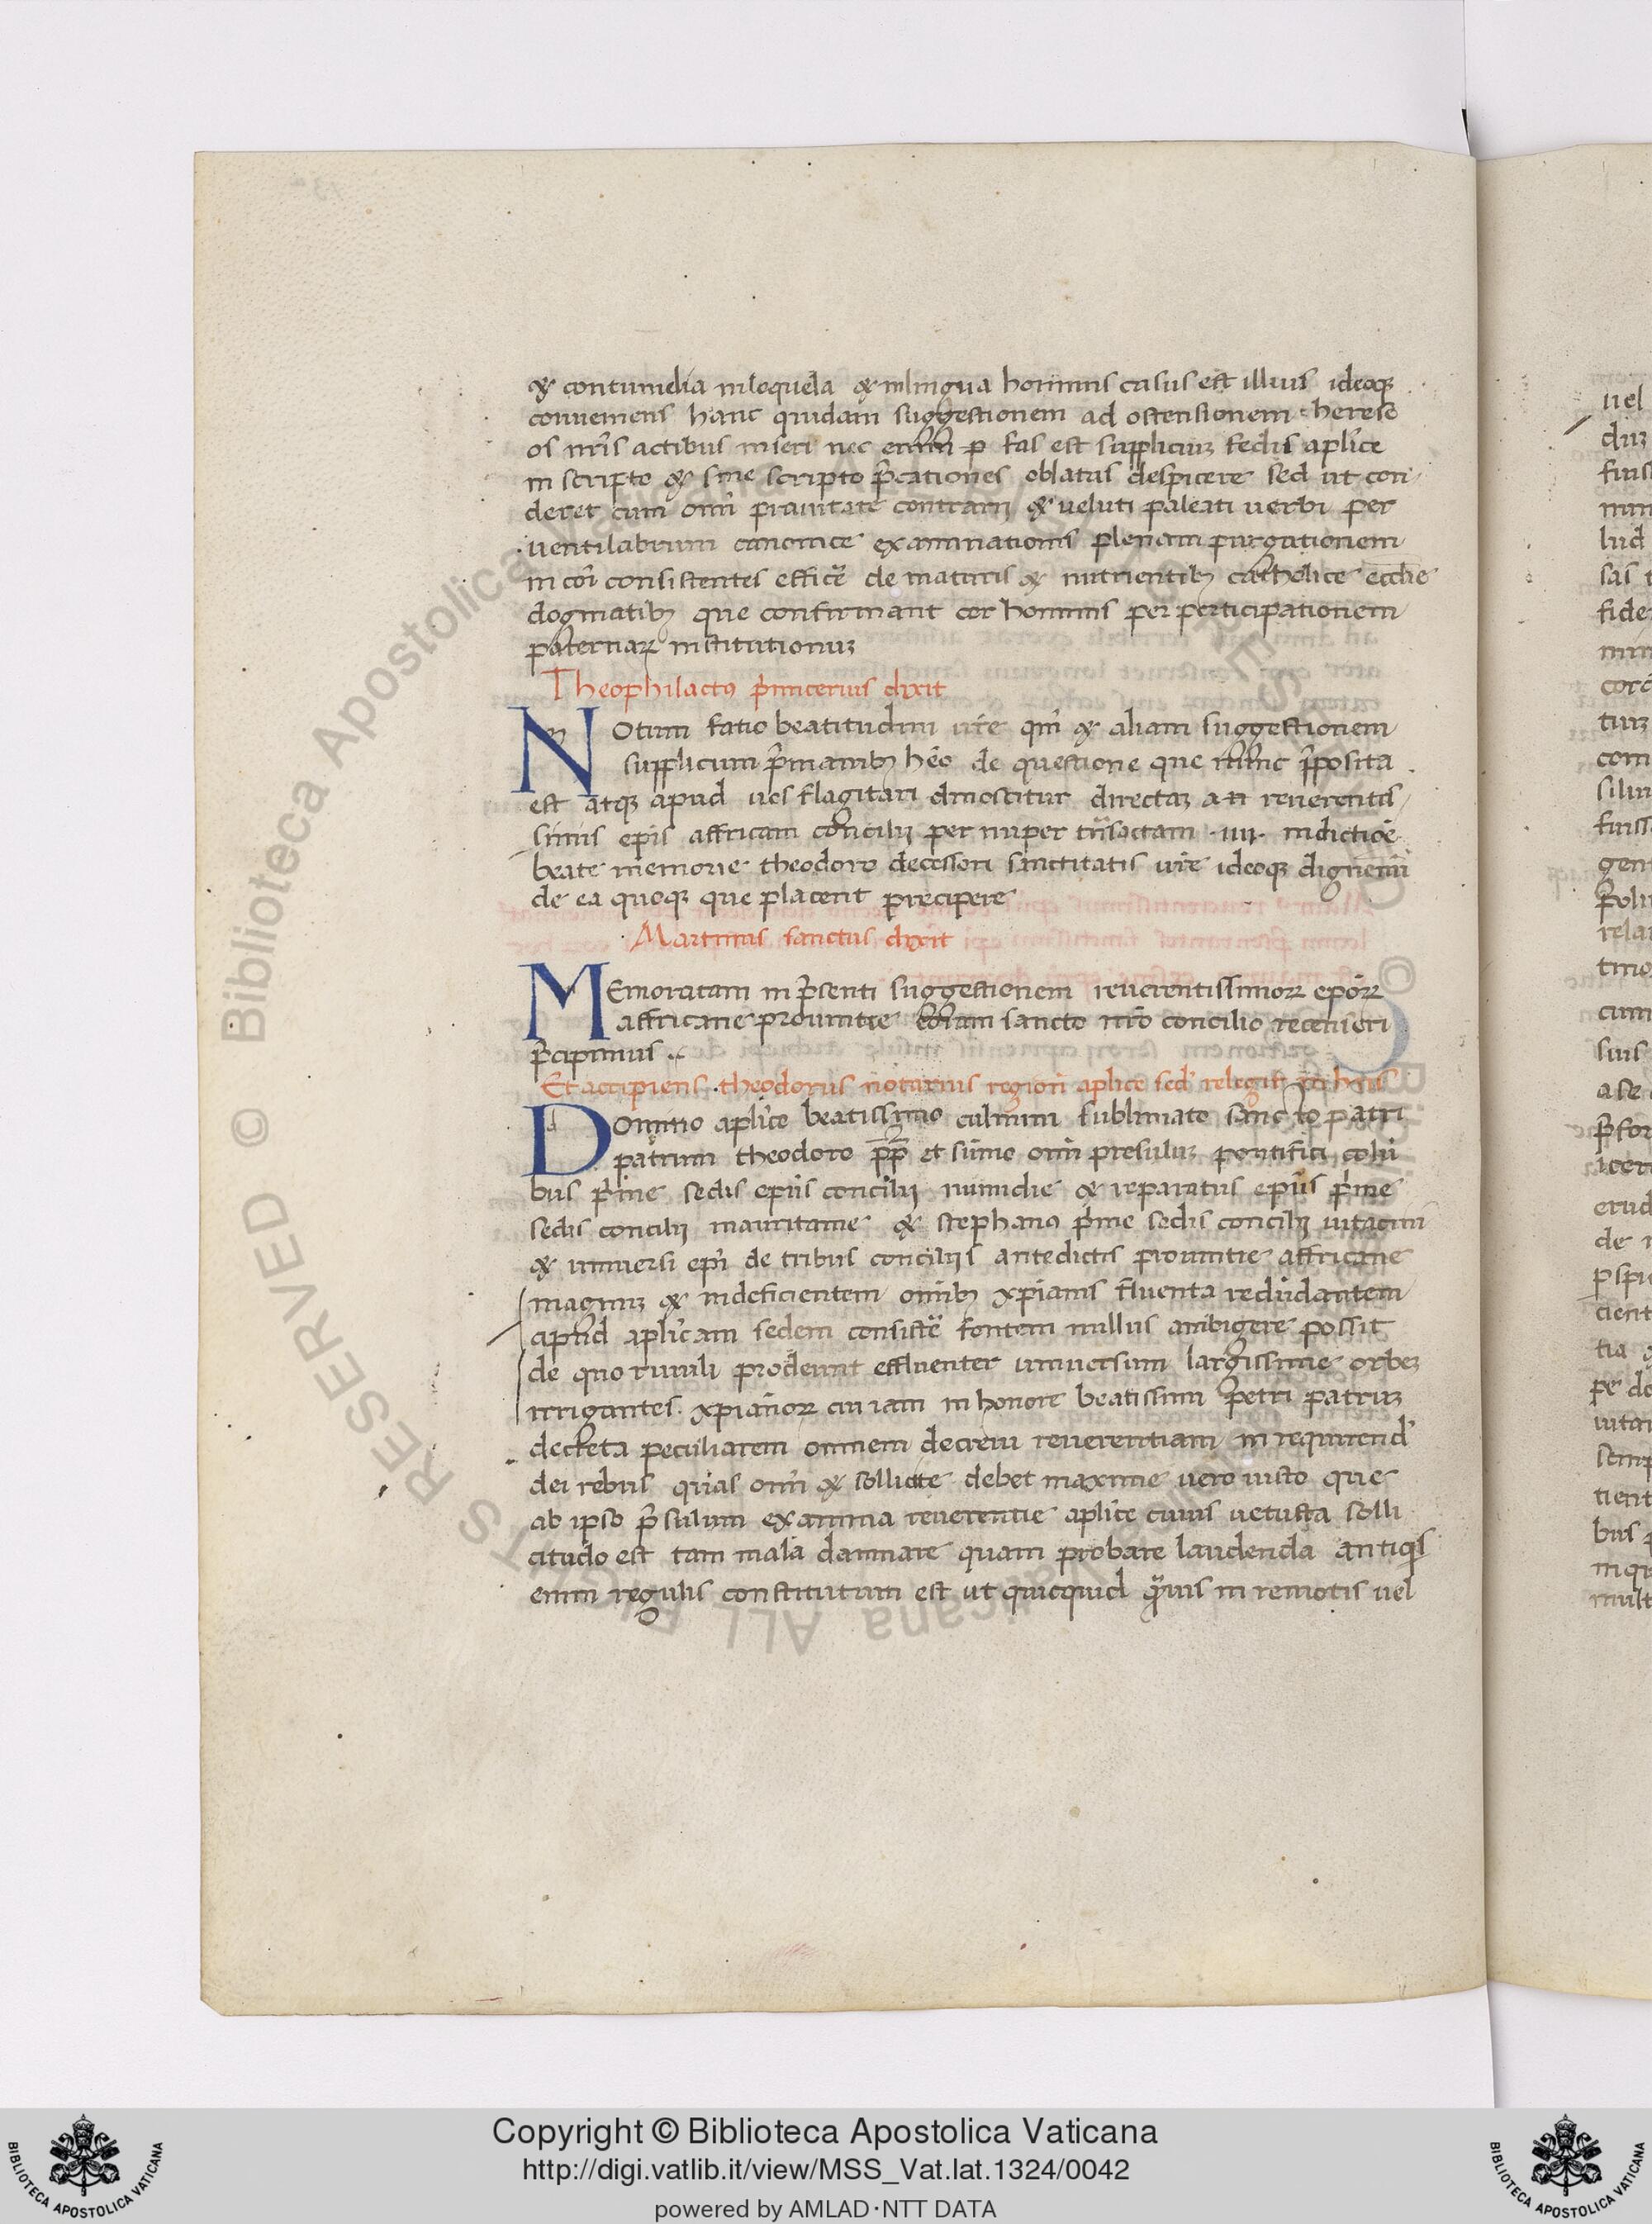 & contumelia in loquela & in lingua hominis casus est illius ideoq;
conueniens hanc quidam suggestionem ad ostensionem hereseo
os nr̄is actibus inseri nec enim p fas est supplicuȝ sedis aplīce
in scripto & sine scripto p̄cationes oblatas despicere sed ut con
deret cum om̄i prauitate contrarij & ueluti paleati uerbi per
uentilabrum canonice examinationis plenam purgationem
in cor̄i consistentes efficē de maturis & nutrientibȝ catholice ecclīe
dogmatibȝ que confirmant cor hominis per perticipationem
paternaꝝ institutionuȝ
Theophilactꝰ p̄micerius dixit
NOtum fatio beatitudini ur̄e qm̄ & aliam suggestionem
supplicum p̄manibȝ hēo de questione que nunc p̄posita
est atqȝ apud uos flagitari dinoscitur directaȝ a reuerentis
simis ep̄is affricani concilij per nuper trāsactam .iiij. indictiōe
beate memorie theodoro decessori sanctitatis ur̄e ideoqȝ dignemī
de ea quoqȝ que placent precipere
Martinus sanctus dixit
MEmoratam in p̄senti suggestionem reuerentissimoꝝ ep̄oꝝ
affricane prouintie coram sancto nr̄o concilio recenseri
p̄cipimus
Et accipiens theodorus notarius region̄ aplīce sed̄ relegit in his
DOmino aplīce beatissimo culmini sublimato sancto patri
patrum theodoro pp̄ et sūmo om̄i presuluȝ pontifici colū
bus p̄me sedis ep̄iis concilij numidie & reparatus ep̄us p̄me
sedis concilij mauritanie & stephanꝰ p̄me sedis concilij uitaceni
& uniuersi ep̄i de tribus concilijs antedictis prouintie affricane
magnuȝ & indeficientem om̄ibȝ xp̄ianis fluenta redūdantem
apud aplīcam sedem consistē fontem nullus ambigere possit
de quo riuuli prodeunt effluenter uniuersum largissime orbeȝ
irrigantes. xp̄ianoꝝ cui iam in honore beatissimi petri patruȝ
decreta peculiarem omnem decreui reuerentiam in requirend̄
dei rebus quas om̄i & sollicite debet maxime uero iusto que
ab ipso p̄sulum examina reuerentie aplīce cuius uetusta solli
citudo est tam mala damnare quam probare laudenda antiqs
enim regulis constitutum est ut quicquid quis in remotis uel
uel
duȝ
fuis
lud
sas
fide
tuȝ
com
silu
fuiss
gen
relat
cum
suis
a se
erud
de
cient
tia
per de
semp
tient
bus
© Biblioteca Apostolica Vaticana ALL RIGHTS RESERVED
Copyright © Biblioteca Apostolica Vaticana
http://digi.vatlib.it/view/MSS_Vat.lat.1324/0042
powered by AMLAD·NTT DATA
BIBLIOTECA APOSTOLICA VATICANA
BIBLIOTECA APOSTOLICA VATICANA